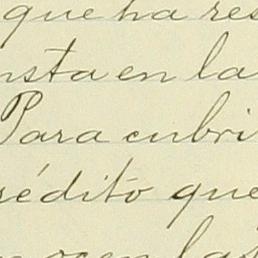 que ha res
nsta en la
Para cubri
rédito que